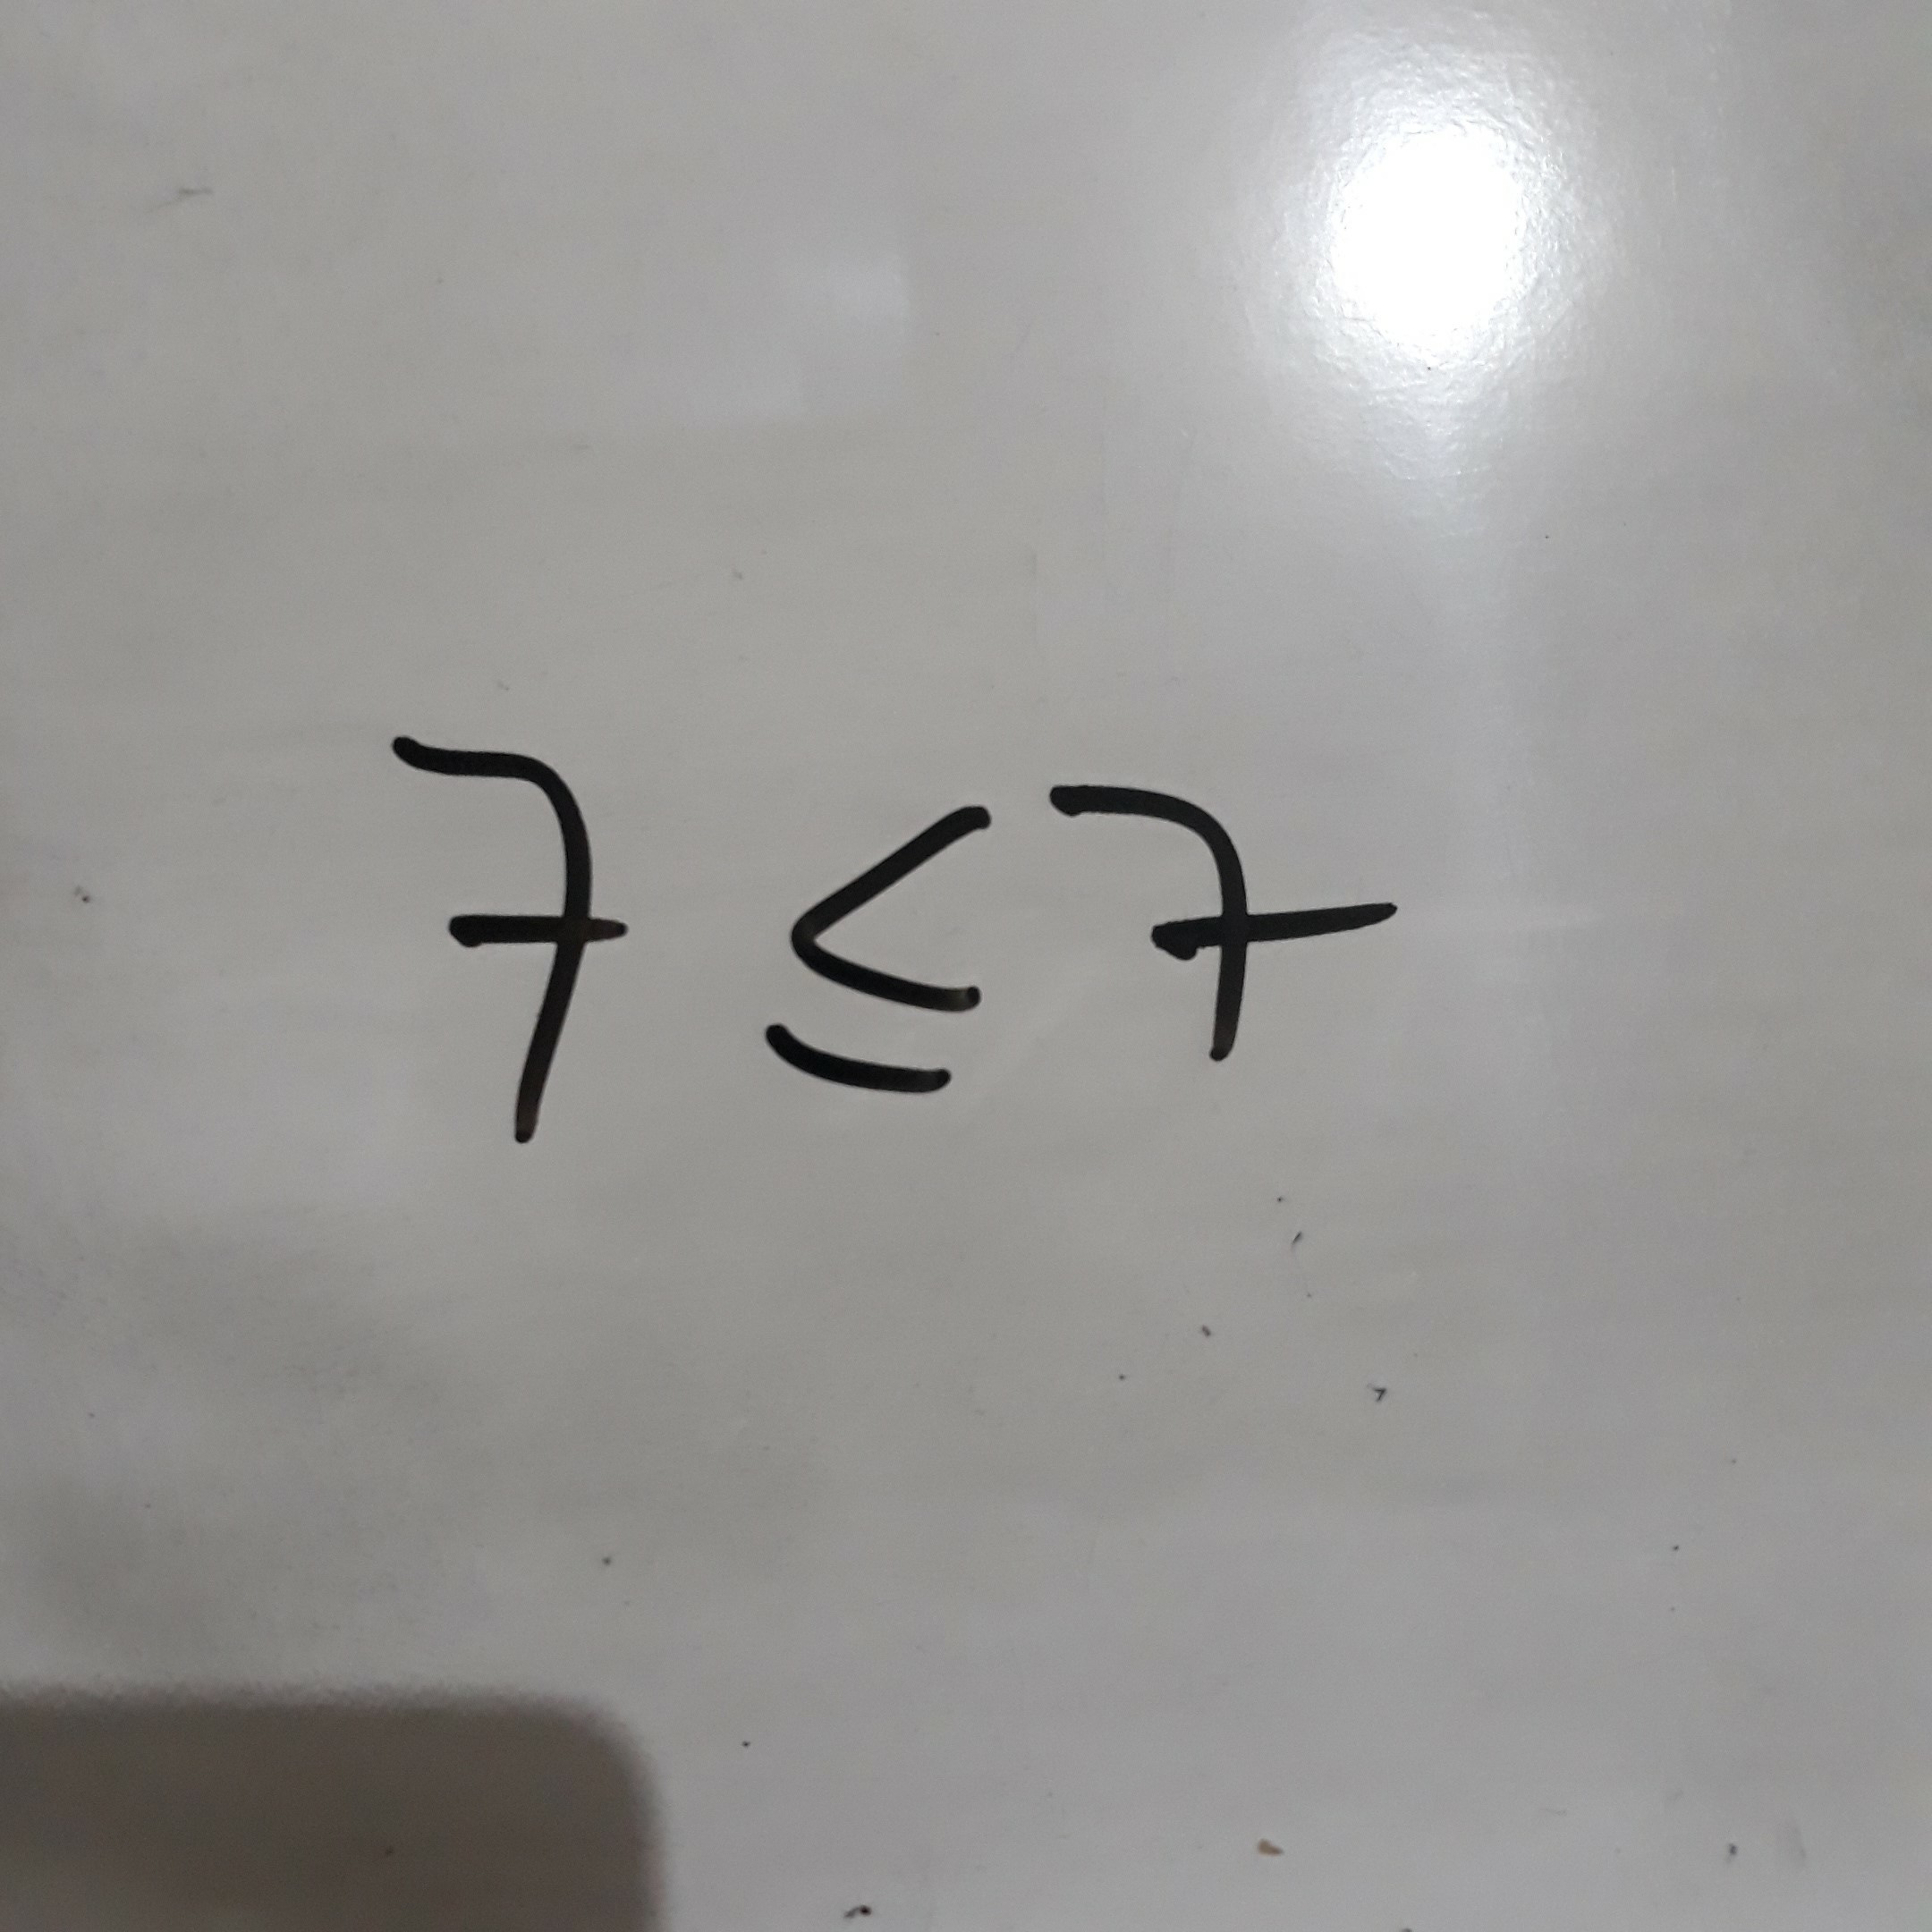 7 ≤ 7